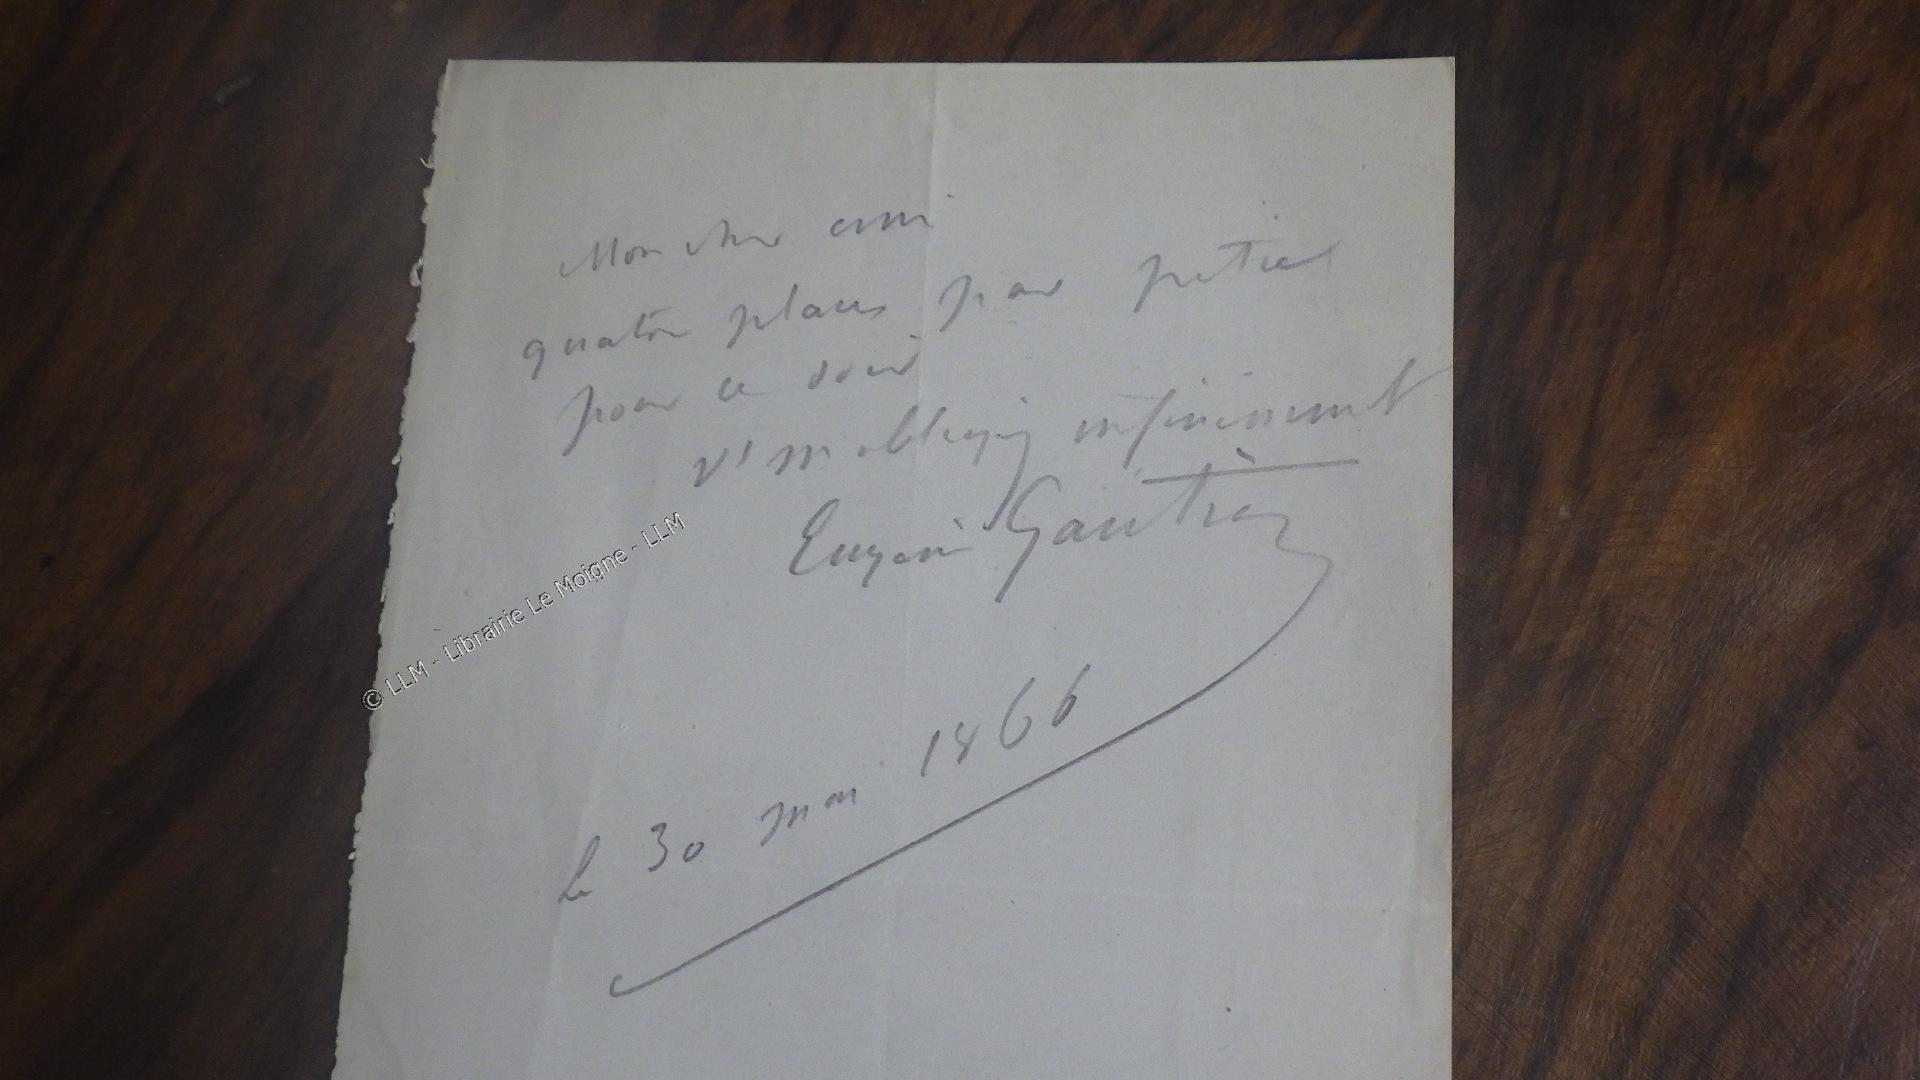 Mon cher ami
quatre places par pitié
pour ce soir
Vs m'obligerez infiniment
Eugène Gautier
Le 30 mai 1866
© LLM - Librairie Le Moigne - LLM